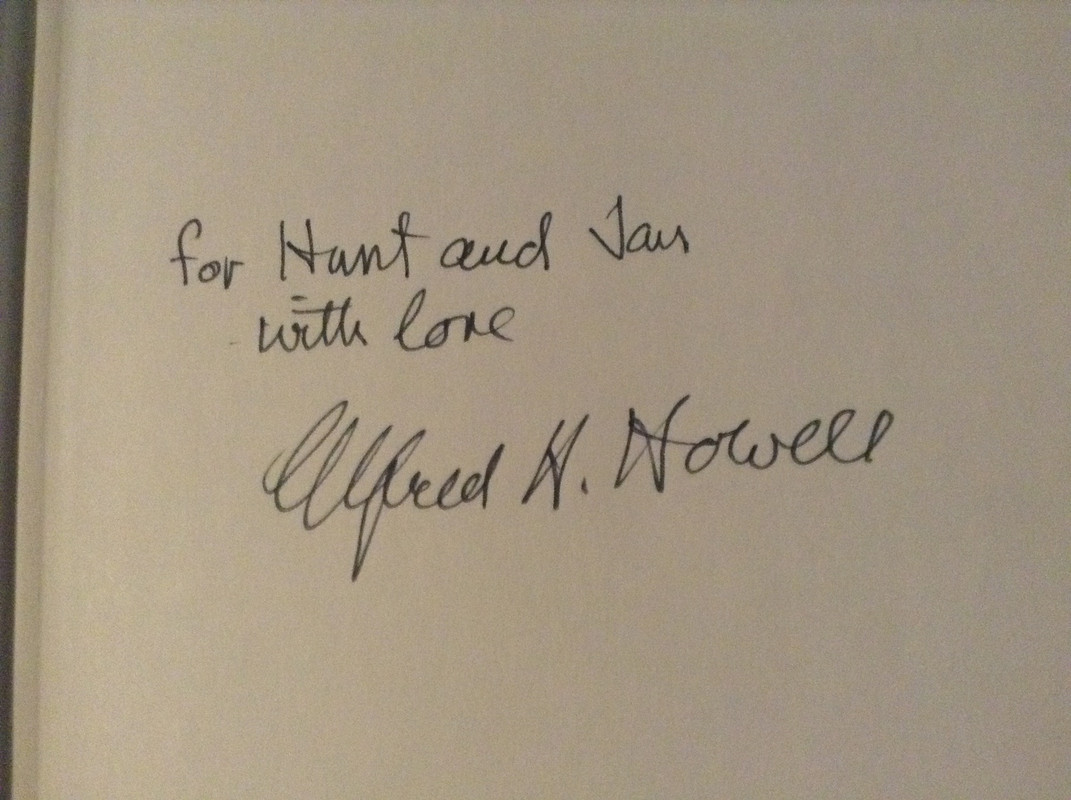 for Hunt and Jan
with love
Alfred H. Howell